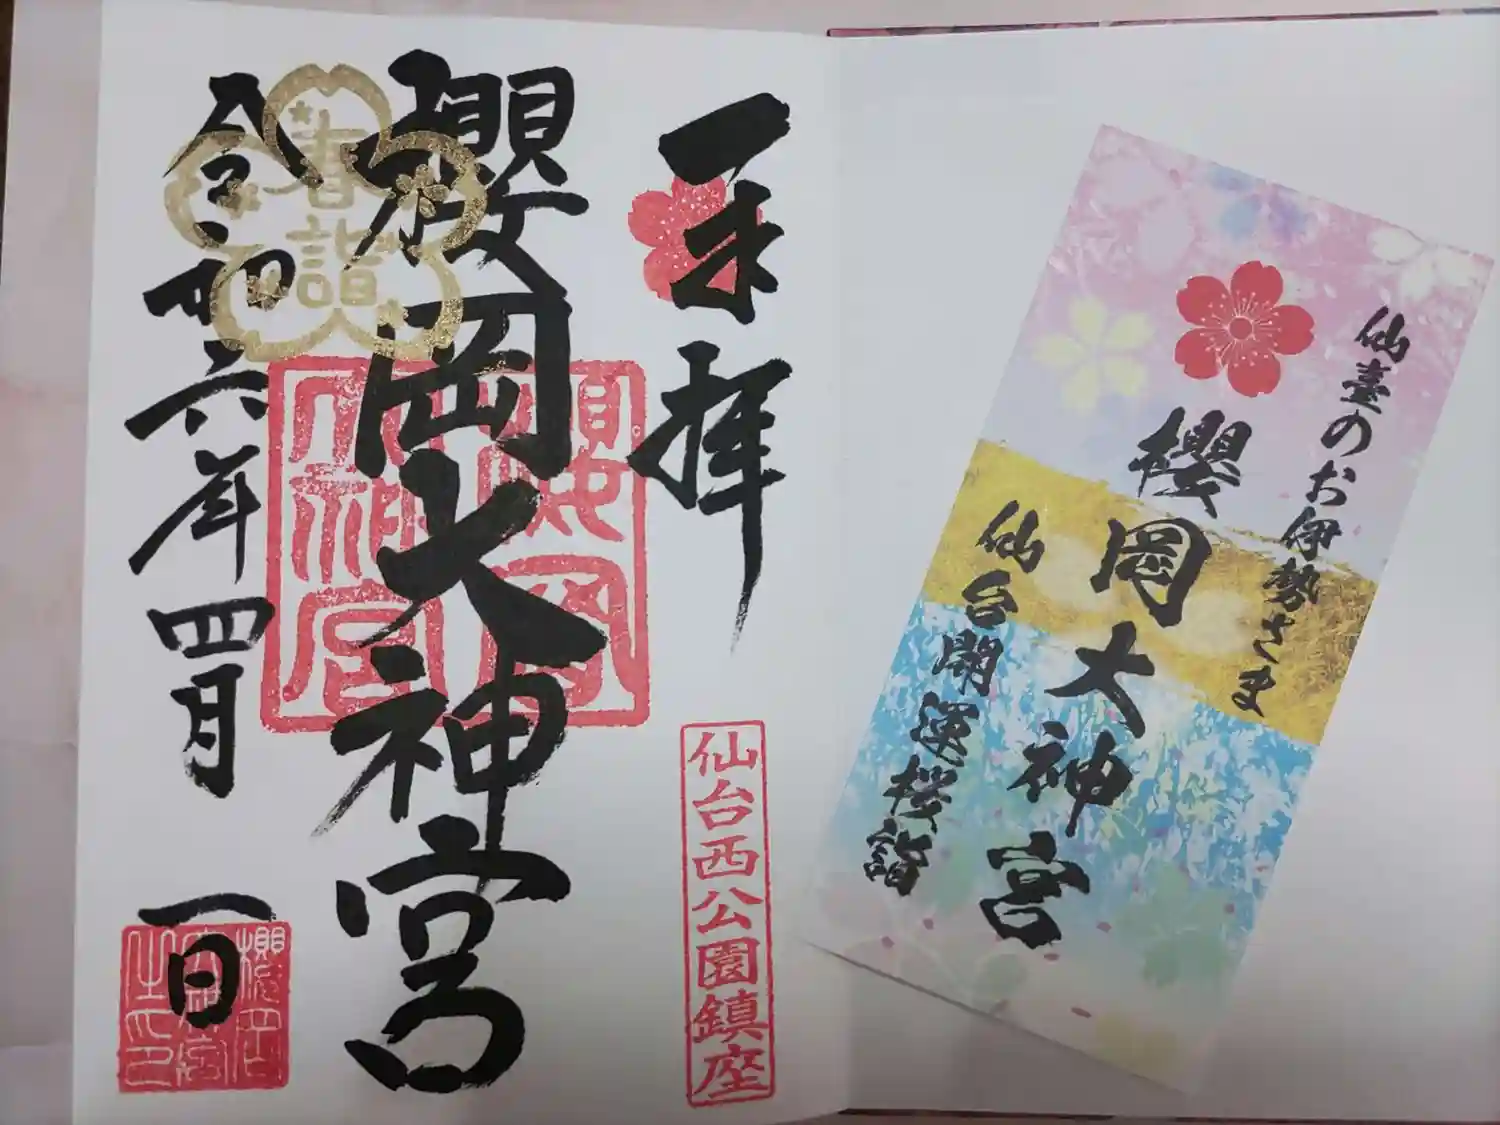 奉拝
櫻岡大神宮
春詣
令和六年四月一日
櫻岡大神宮
仙台西公園鎮座
仙臺のお伊勢さま
櫻岡大神宮
仙台開運桜詣